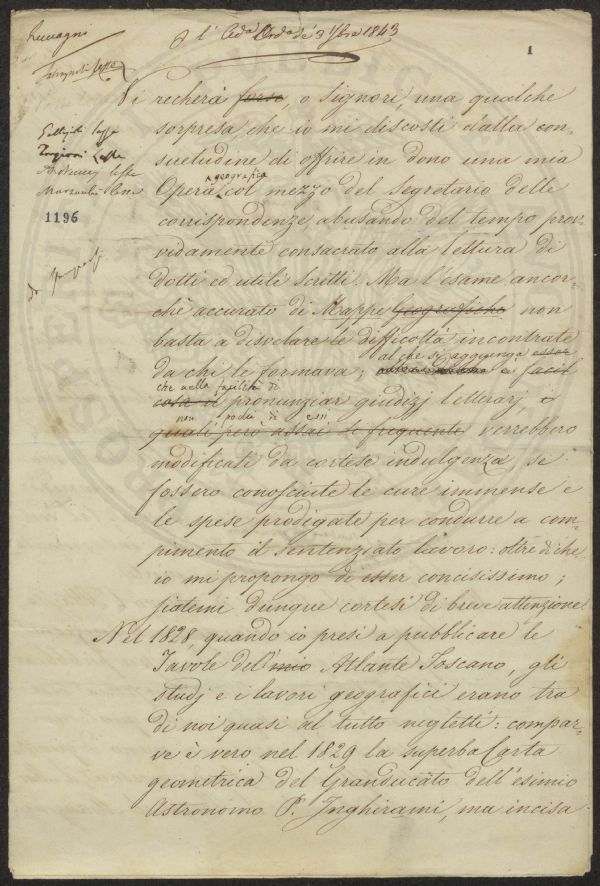 A l'Ad.a Ord.a de' 3 1843
1
Vi recherà forse, o Signori, una qualche
sorpresa che io mi discosti dalla con-
suetudine di offrire in dono una mia
geografica
Opera col mezzo del Segretario delle
1196
corrispondenze, abusando del tempo prov-
vidamente consacrato alla lettura di
dotti ed utili scritti. Ma l'esame ancor-
chè accurato di Mappe Geografiche non
basta a disvelare le difficoltà incontrate
al che si aggiunga
da chi le formava; è facil
che nella facilità di
cosa il pronunziar giudizj letterarj, i
non pochi di essi
quali però assai le frequente verrebbero
modificati da cortese indulgenza, se
fossero conosciute le cure immense e
le spese prodigate per condurre a com-
pimento il sentenziato lavoro: oltre di che
io mi propongo di esser concisissimo;
siatemi dunque cortesi di breve attenzione.
Nel 1828, quando io presi a pubblicare le
Tavole del mio Atlante Toscano, gli
studj e i lavori geografici erano tra
di noi quasi al tutto negletti: compar-
ve è vero nel 1829 la superba Carta
geometrica del Granducato dell'esimio
Astronomo P. Inghirami, ma incisa